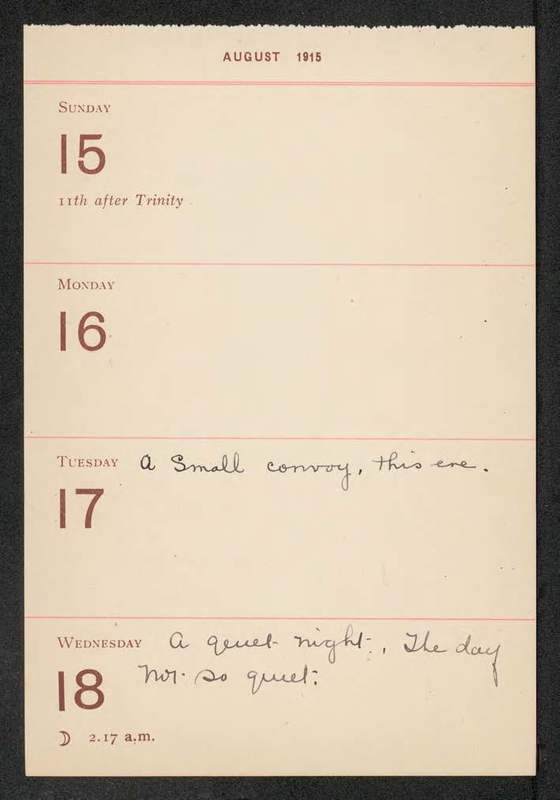 AUGUST 1915
SUNDAY
15
11th after Trinity
MONDAY
16
TUESDAY A Small convoy, this eve.
17
WEDNESDAY A quiet night. The day
18 not so quiet.
☽ 2.17 a.m.